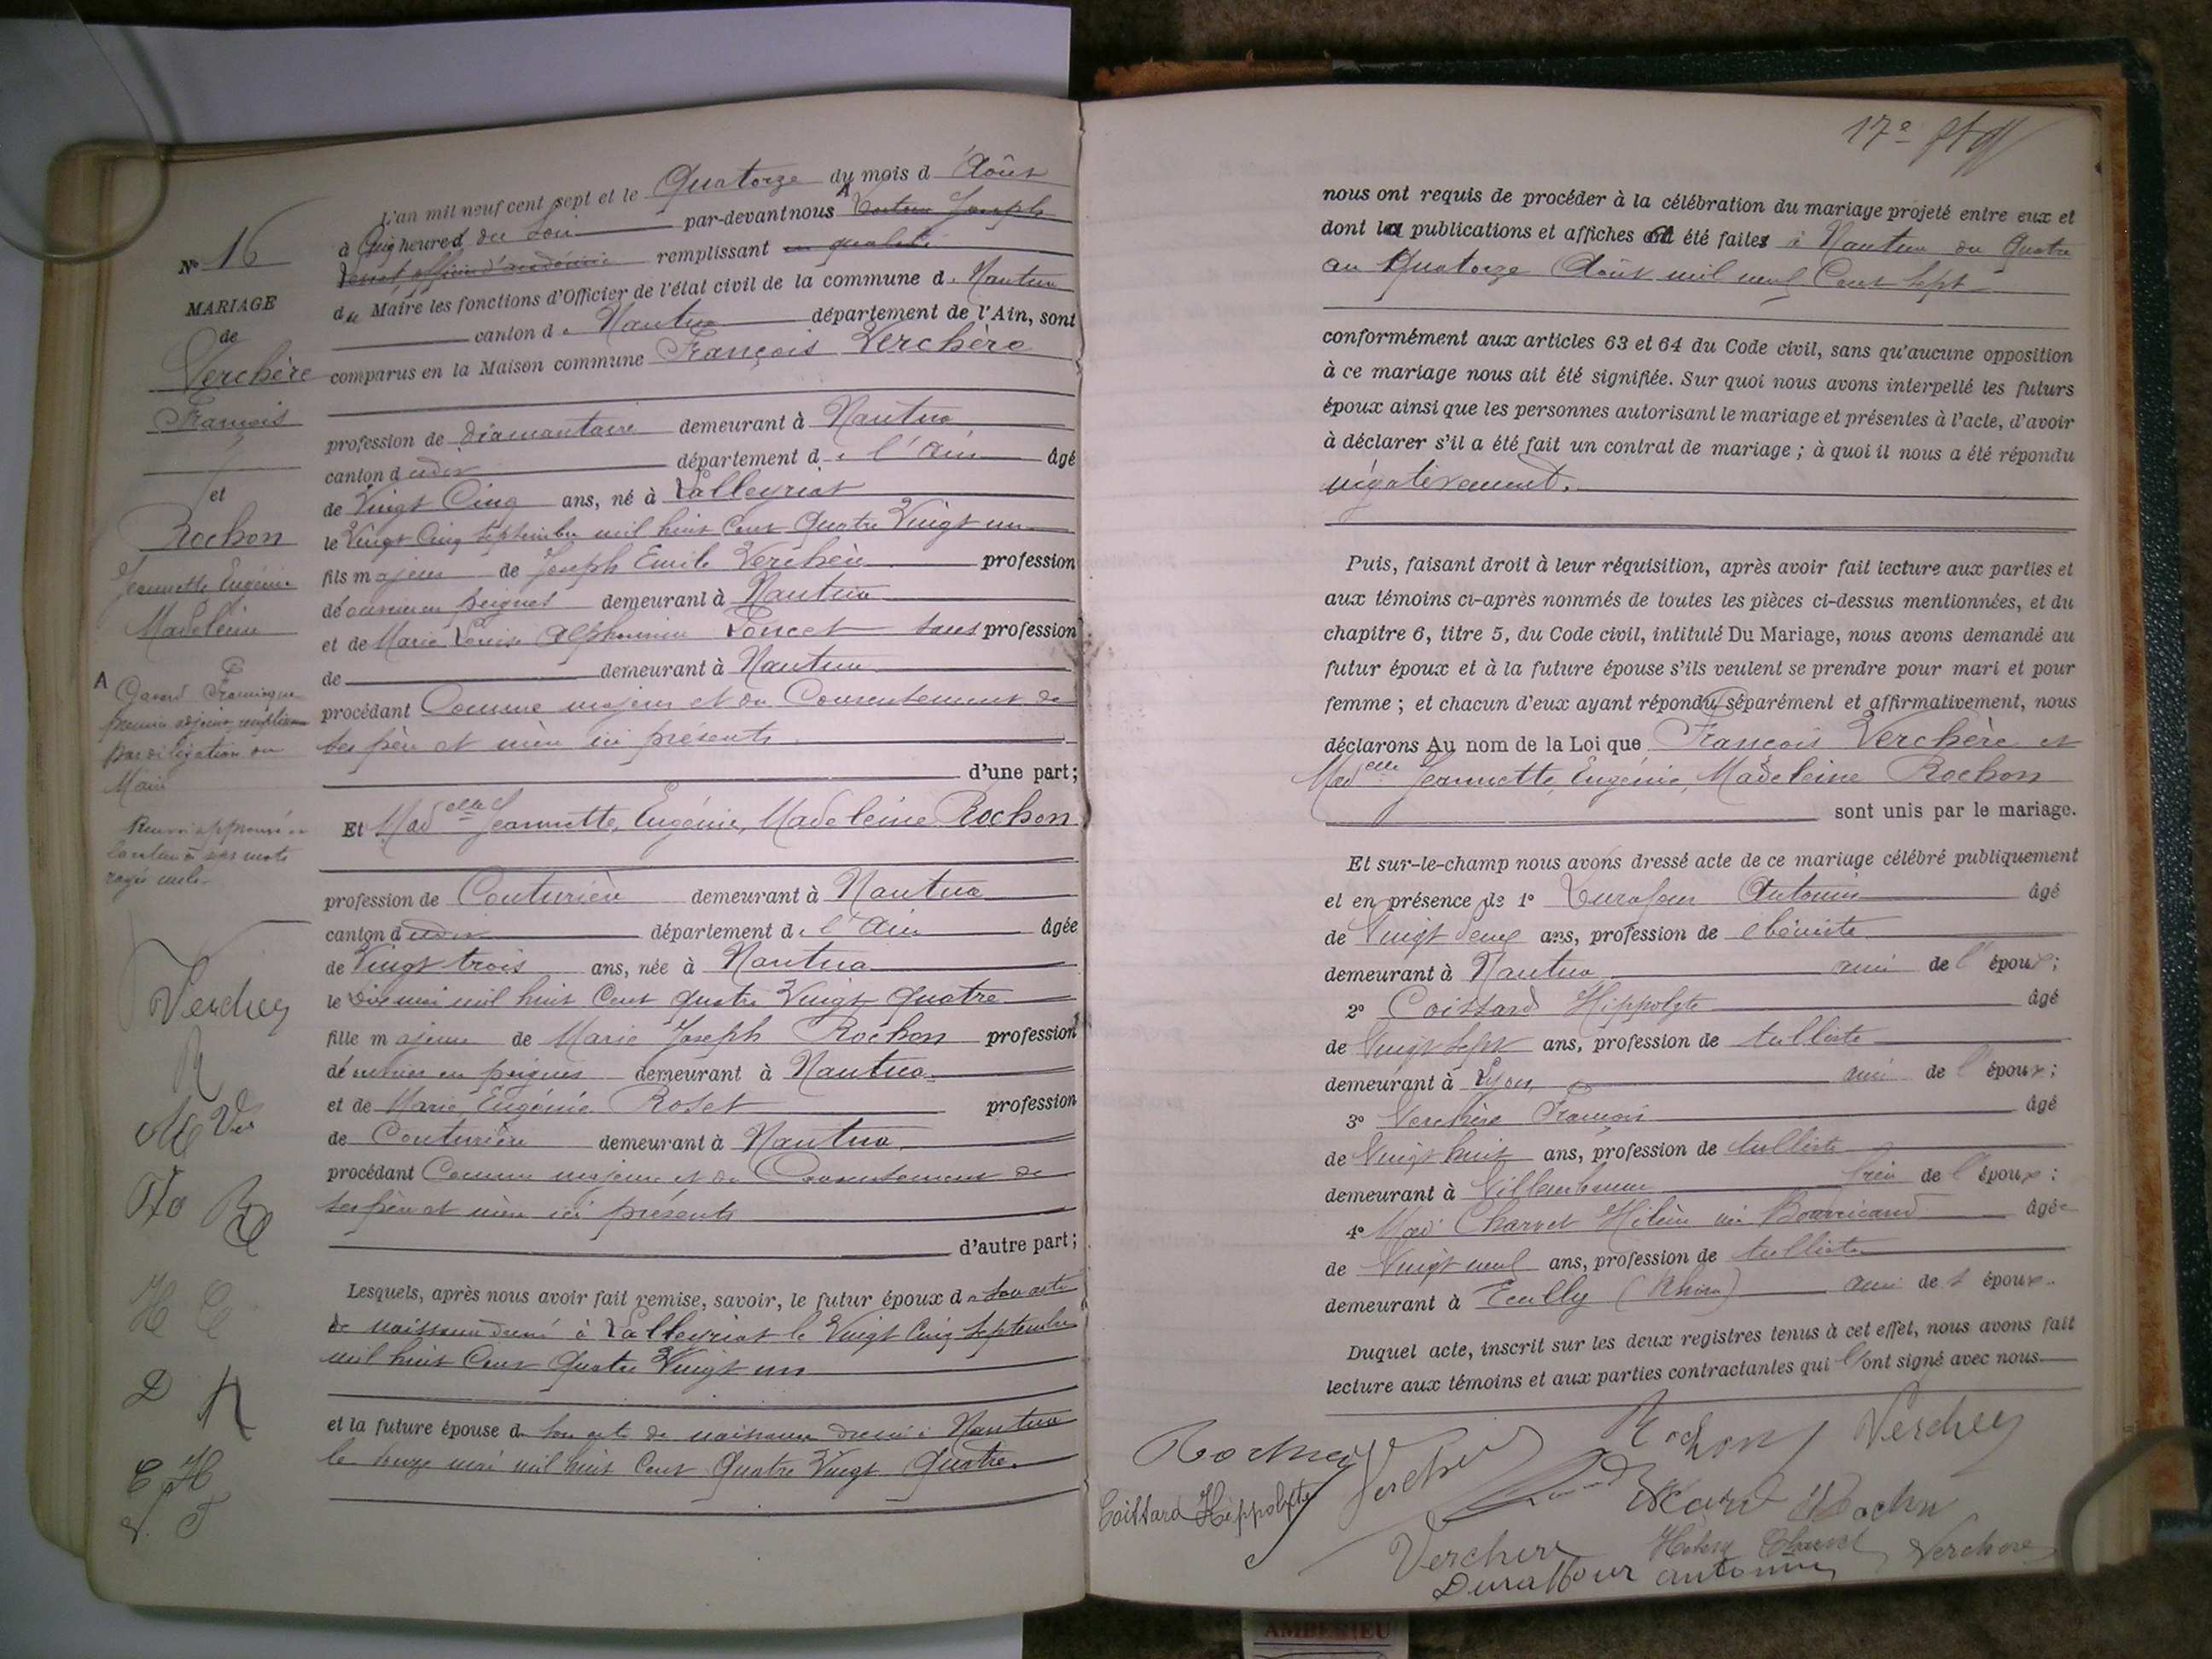 N° 16
MARIAGE
de
Verchère
François
et
Rochon
Jeannette Eugénie
Madeleine
A
premier adjoint remplissant
par délégation du
Maire
Renvoi approuvé
rayés nuls
L'an mil neuf cent sept et le Quatorze du mois d'Août
à Cinq heures du Soir par-devant nous A Joseph
remplissant en qualité
du Maire les fonctions d'Officier de l'état civil de la commune de Nantua
canton de Nantua département de l'Ain, sont
comparus en la Maison commune François Verchère
profession de diamantaire demeurant à Nantua
canton dudit département de l'Ain âgé
de Vingt Cinq ans, né à Lalleyriat
le Vingt Cinq Septembre mil huit Cent Quatre Vingt un
fils majeur de Joseph Emile Verchère profession
d'ouvrier en peignes demeurant à Nantua
et de Marie Louise Alphonsine Poncet sans profession
de demeurant à Nantua
procédant Comme majeur et du Consentement de
ses père et mère ici présents
d'une part;
Et Madelle Jeannette, Eugénie, Madeleine Rochon
profession de Couturière demeurant à Nantua
canton dudit département de l'Ain âgée
de Vingt trois ans, née à Nantua
le dix mai mil huit Cent Quatre Vingt Quatre
fille majeure de Marie Joseph Rochon profession
d'ouvrier en peignes demeurant à Nantua
et de Marie Eugénie Roset profession
de Couturière demeurant à Nantua
procédant Comme majeure et du Consentement de
ses père et mère ici présents
d'autre part;
Lesquels, après nous avoir fait remise, savoir, le futur époux de son acte
de naissance dressé à Lalleyriat le Vingt Cinq Septembre
mil huit Cent Quatre Vingt un
et la future épouse de son acte de naissance dressé à Nantua
le mai mil huit Cent Quatre Vingt Quatre.
Verchère
17e
nous ont requis de procéder à la célébration du mariage projeté entre eux et
dont la publications et affiches ont été faites à Nantua du Quatre
au Quatorze Août mil neuf Cent Sept
conformément aux articles 63 et 64 du Code civil, sans qu'aucune opposition
à ce mariage nous ait été signifiée. Sur quoi nous avons interpellé les futurs
époux ainsi que les personnes autorisant le mariage et présentes à l'acte, d'avoir
à déclarer s'il a été fait un contrat de mariage ; à quoi il nous a été répondu
négativement.
Puis, faisant droit à leur réquisition, après avoir fait lecture aux parties et
aux témoins ci-après nommés de toutes les pièces ci-dessus mentionnées, et du
chapitre 6, titre 5, du Code civil, intitulé Du Mariage, nous avons demandé au
futur époux et à la future épouse s'ils veulent se prendre pour mari et pour
femme ; et chacun d'eux ayant répondu séparément et affirmativement, nous
déclarons Au nom de la Loi que François Verchère et
Madelle Jeannette, Eugénie, Madeleine Rochon
sont unis par le mariage.
Et sur-le-champ nous avons dressé acte de ce mariage célébré publiquement
et en présence de 1° Durafour Antonin âgé
de Vingt deux ans, profession de ébéniste
demeurant à Nantua ami de l'époux;
2° Coissard Hippolyte âgé
de Vingt Sept ans, profession de tulliste
demeurant à Lyon ami de l'époux;
3° Verchère François âgé
de Vingt huit ans, profession de tulliste
demeurant à Villeurbanne frère de l'époux;
4° Made Charvet Hélène née Bourricaud âgée
de Vingt neuf ans, profession de tulliste
demeurant à Ecully (Rhône) amie de l'époux.
Duquel acte, inscrit sur les deux registres tenus à cet effet, nous avons fait
lecture aux témoins et aux parties contractantes qui l'ont signé avec nous
Rochon Verchère
Coissard Hippolyte
Verchere Verchere
Duraffour antonin
AMBERIEU